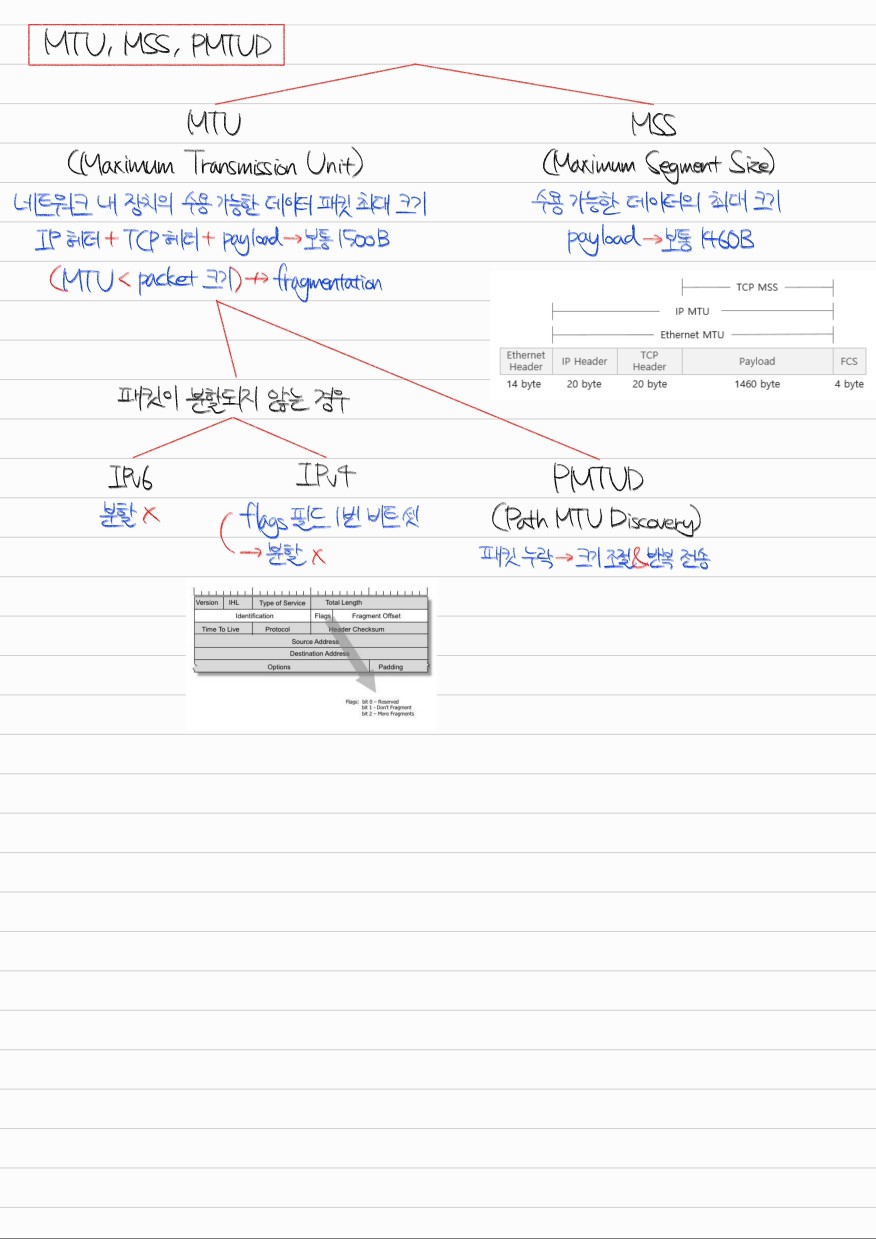 MTU, MSS, PMTUD
MTU
(Maximum Transmission Unit)
네트워크 내 장치의 수용 가능한 데이터 패킷 최대 크기
IP 헤더 + TCP 헤더 + payload → 보통 1500B
(MTU < packet 크기) → fragmentation
MSS
(Maximum Segment Size)
수용 가능한 데이터의 최대 크기
payload → 보통 1460B
TCP MSS
IP MTU
Ethernet MTU
Ethernet Header IP Header TCP Header Payload FCS
14 byte 20 byte 20 byte 1460 byte 4 byte
패킷이 분할되지 않는 경우
IPv6
분할 X
IPv4
flags 필드 1번 비트 셋
→ 분할 X
PMTUD
(Path MTU Discovery)
패킷 누락 → 크기 조절 & 반복 전송
Version IHL Type of Service Total Length
Identification Flags Fragment Offset
Time To Live Protocol Header Checksum
Source Address
Destination Address
Options Padding
Flags: bit 0 – Reserved
bit 1 - Don't Fragment
bit 2 – More Fragments